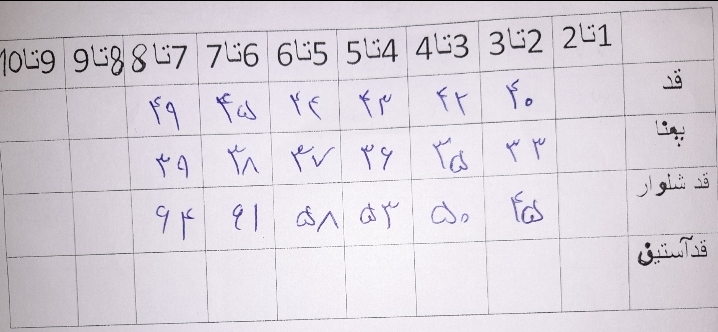 1تا2 2تا3 3تا4 4تا5 5تا6 6تا7 7تا8 8تا9 9تا10
قد ۴۰ ۴۲ ۴۳ ۴۴ ۴۵ ۴۹
پهنا ۳۳ ۳۵ ۳۶ ۳۷ ۳۸ ۳۹
قد شلوار ۴۵ ۵۰ ۵۳ ۵۸ ۶۱ ۶۴
قدآستین